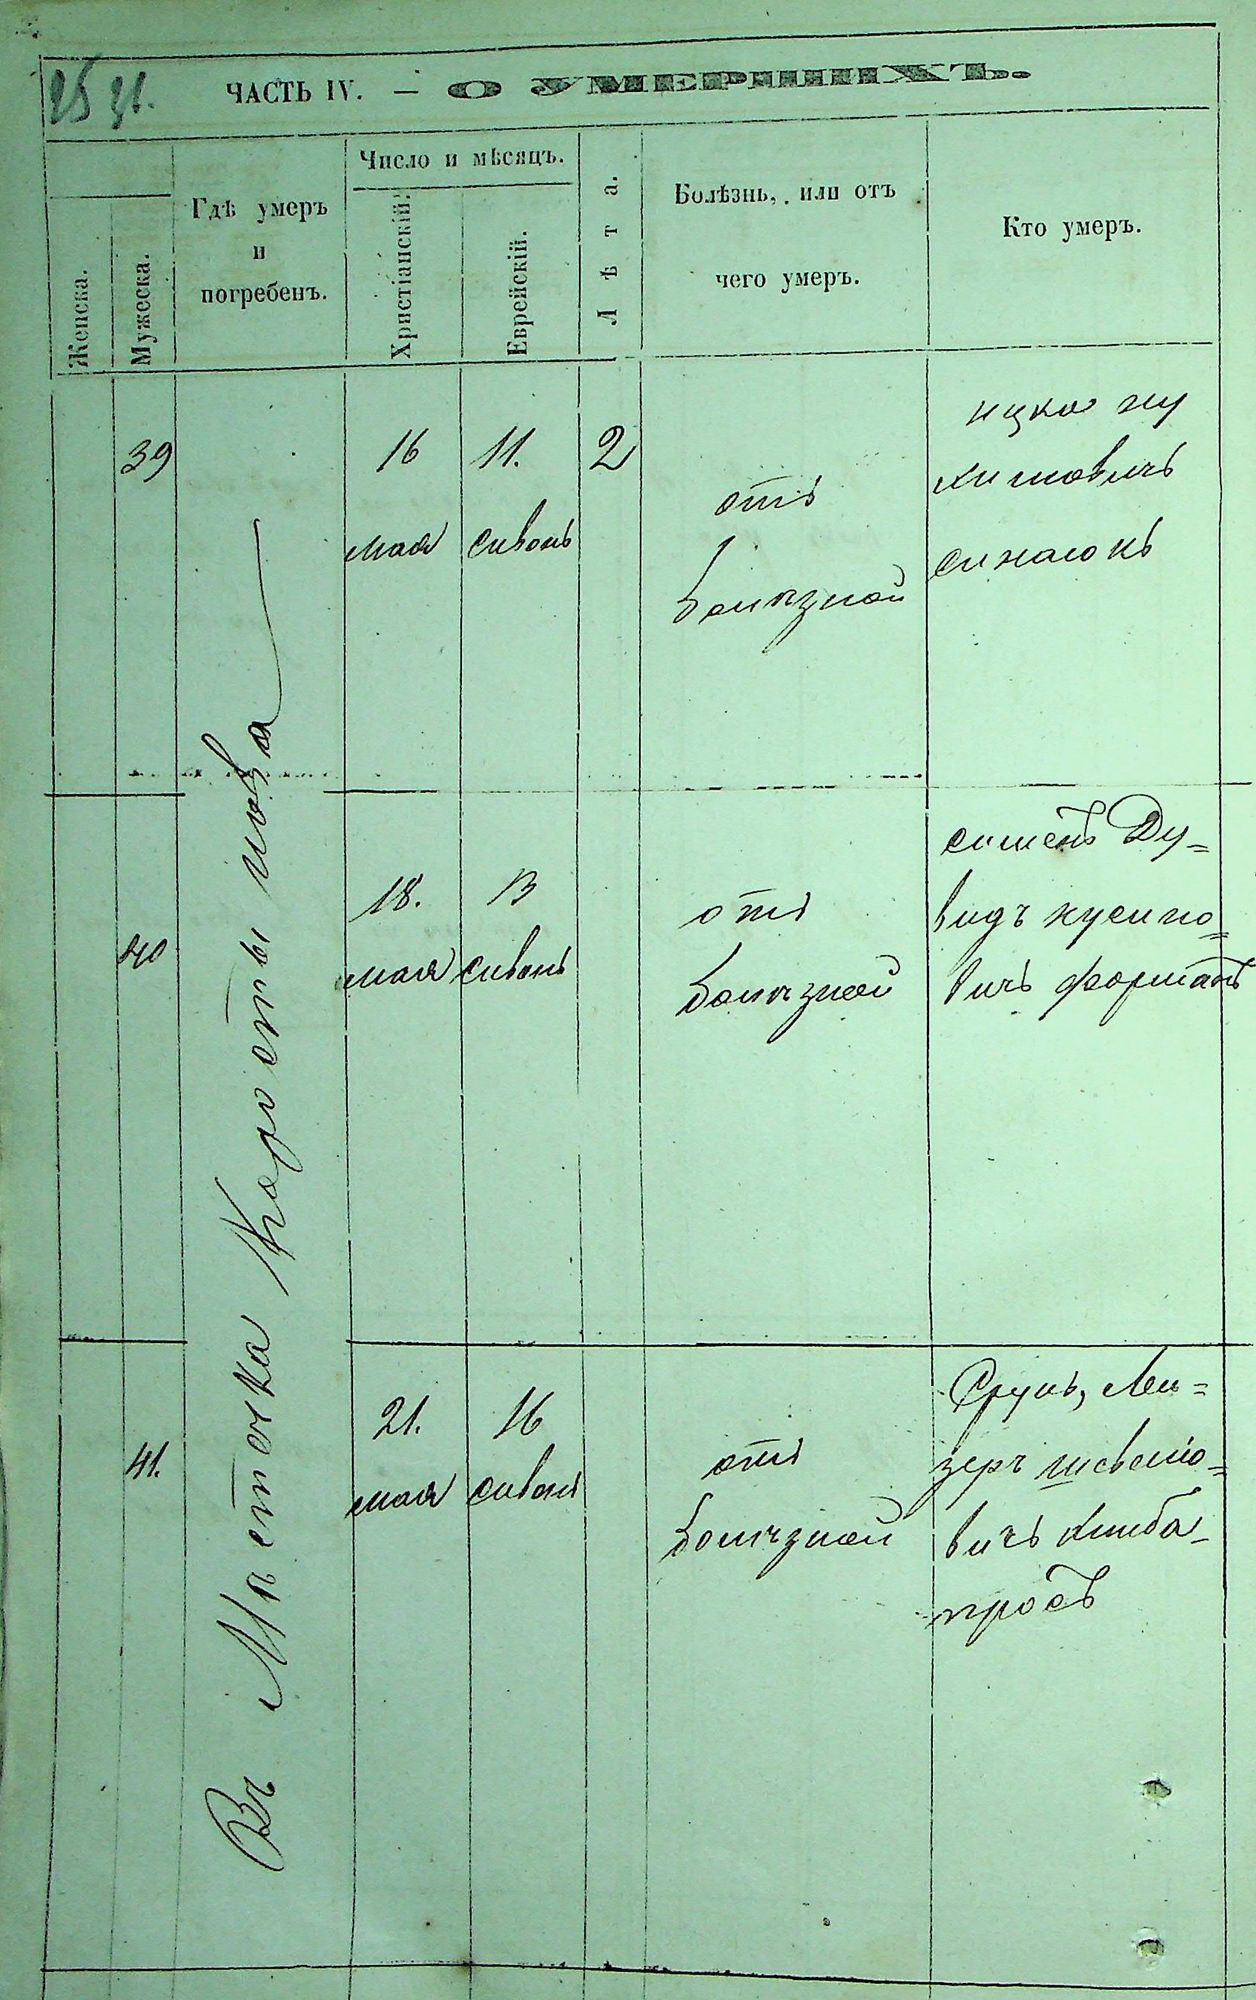 25 31.
ЧАСТЬ IV. — О УМЕРШИХЪ.
Женска.
Мужеска.
Гдѣ умеръ
и
погребенъ.
Число и мѣсяцъ.
Христіанскій.
Еврейскій.
Лѣта.
Болѣзнь, или отъ
чего умеръ.
Кто умеръ.
Въ Мѣстечка
39
16
мая
11.
сивонъ
2
отъ
болѣзней
ицко
40
18.
мая
13
сивонъ
отъ
болѣзней
Ду-
видъ
вичъ форманъ
41.
21.
мая
16
сивонъ
отъ
болѣзней
Срулъ, Лей-
зеръ
вичъ